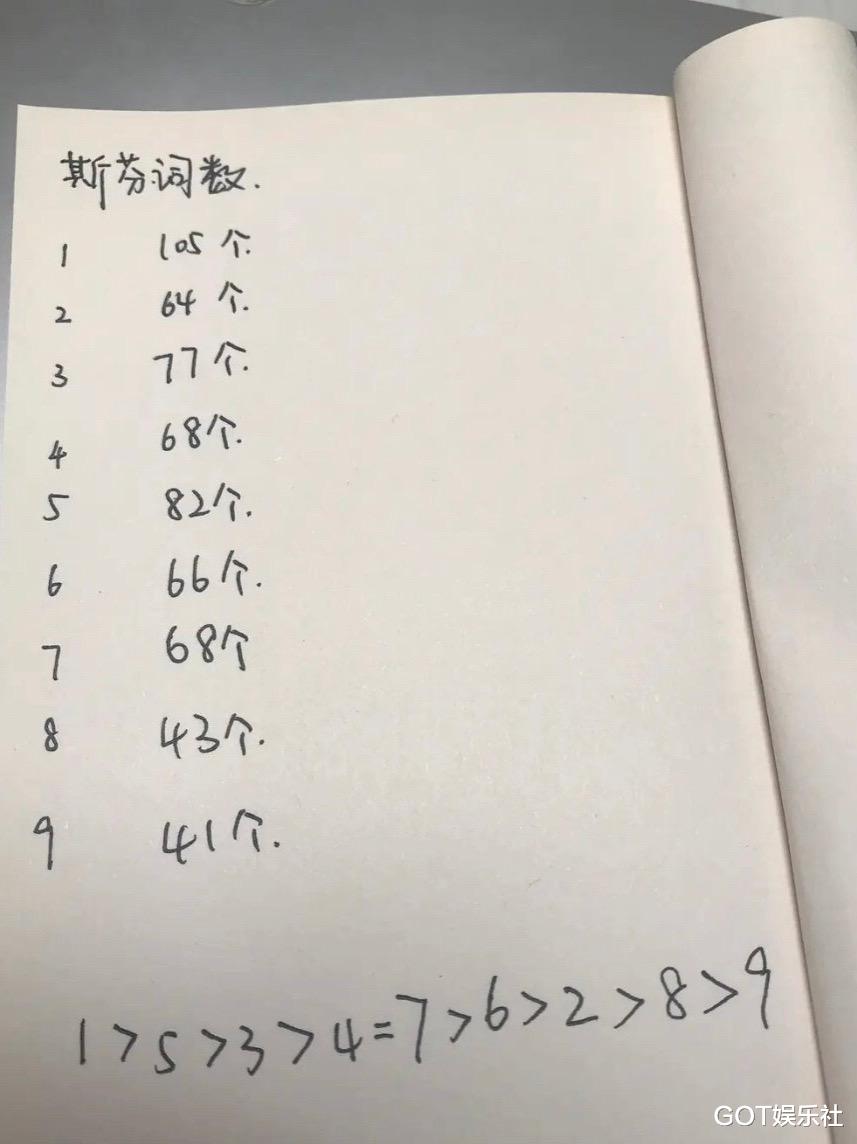 斯芬词数.
1 105个.
2 64个.
3 77个.
4 68个.
5 82个.
6 66个.
7 68个
8 43个.
9 41个.
1>5>3>4=7>6>2>8>9
GOT娱乐社